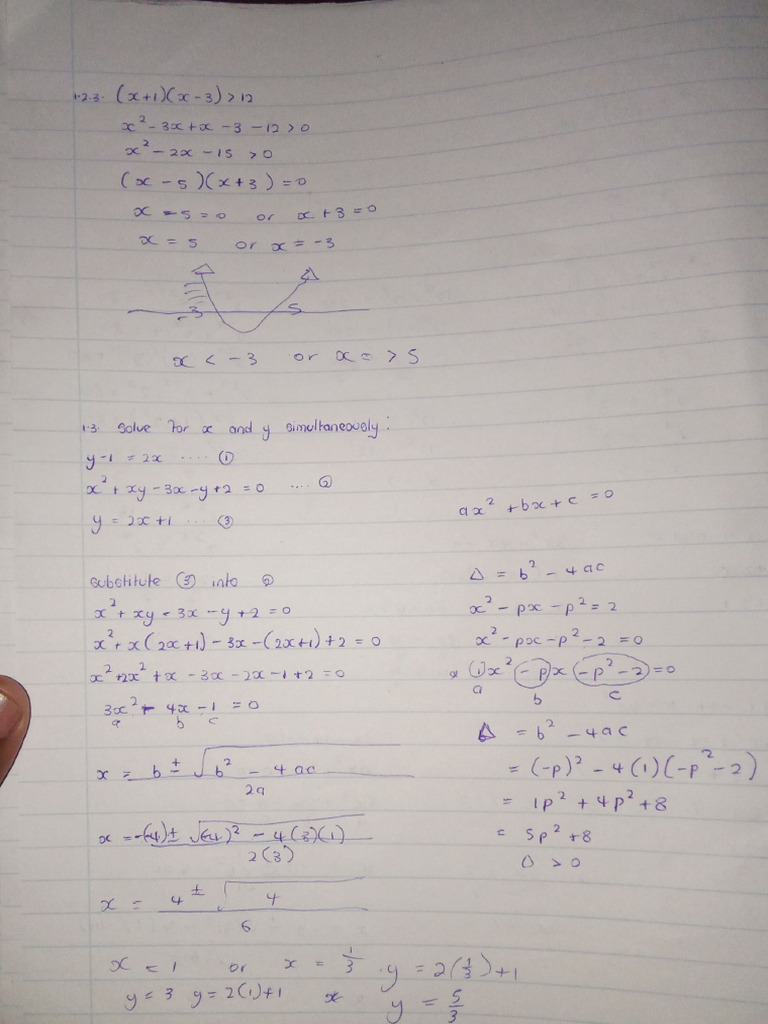 1.2.3. (x+1)(x-3) > 12
x² - 3x + x - 3 - 12 > 0
x² - 2x - 15 > 0
(x - 5)(x + 3) = 0
x - 5 = 0 or x + 3 = 0
x = 5 or x = -3
-3 5
x < -3 or x = > 5
1.3. Solve for x and y simultaneously:
y - 1 = 2x .... ①
x² + xy - 3x - y + 2 = 0 .... ②
y = 2x + 1 .... ③
substitute ③ into ②
x² + xy - 3x - y + 2 = 0
x² + x(2x+1) - 3x - (2x+1) + 2 = 0
x² + 2x² + x - 3x - 2x - 1 + 2 = 0
3x² - 4x - 1 = 0
a b c
x = b ± √b² - 4ac
2a
x = -(-4) ± √(-4)² - 4(3)(1)
2(3)
x = 4 ± √4
6
x = 1 or x = 1/3 . y = 2(1/3) + 1
y = 3 y = 2(1) + 1 x y = 5/3
ax² + bx + c = 0
Δ = b² - 4ac
x² - px - p² = 2
x² - px - p² - 2 = 0
* (1)x² -p x -p² - 2 = 0
a b c
Δ = b² - 4ac
= (-p)² - 4(1)(-p² - 2)
= 1p² + 4p² + 8
= 5p² + 8
Δ > 0